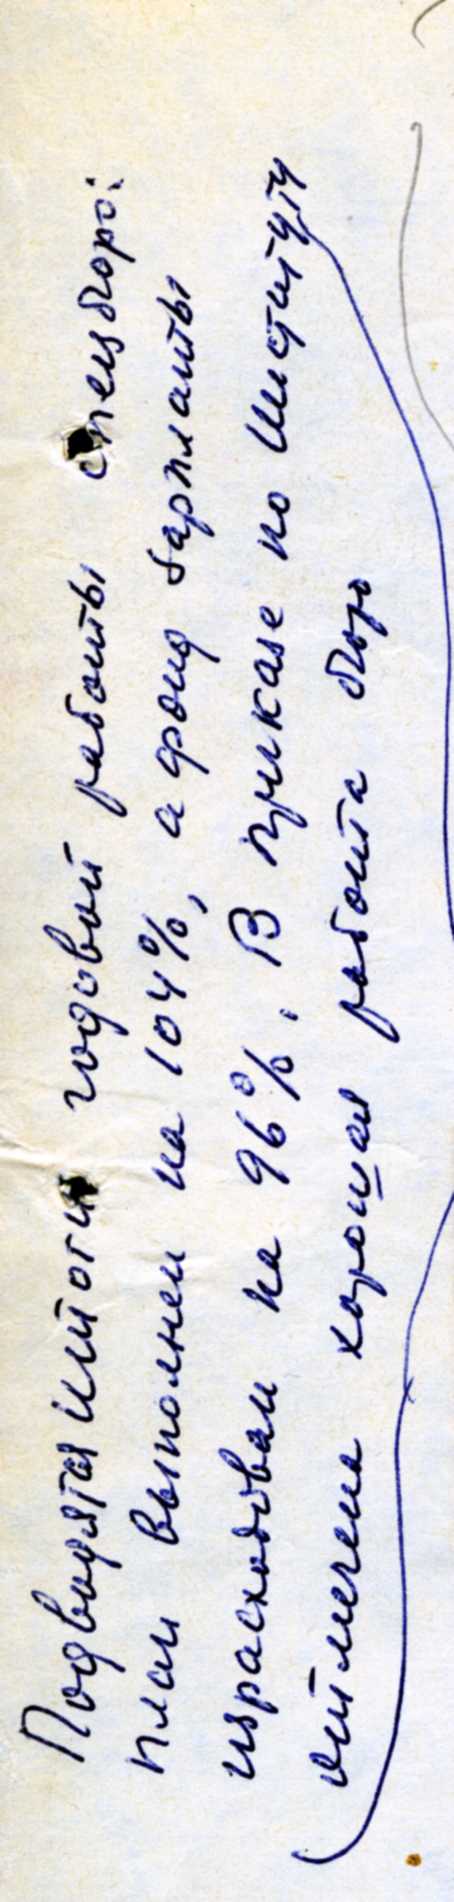 Подводятся итоги годовой работы спецбюро:
план выполнен на 104%, а фонд зарплаты
израсходован на 96%. В приказе по Институту
отмечена хорошая работа бюро